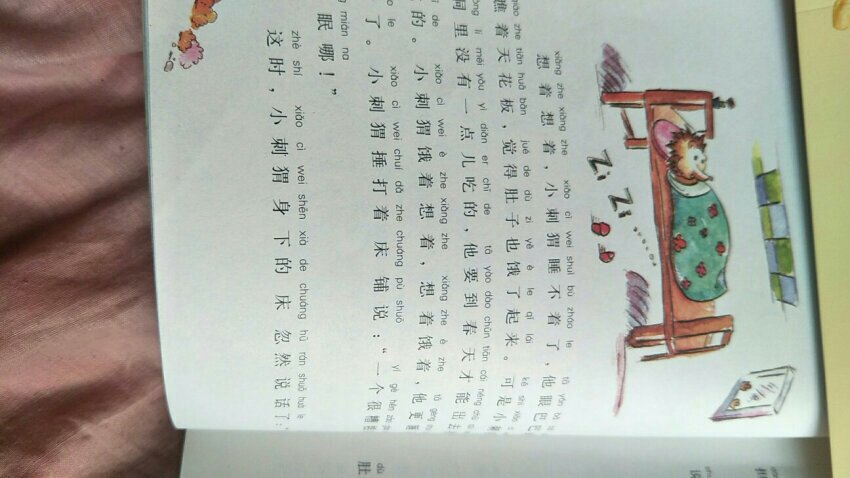 Zi Zi
xiǎng zhe xiǎng zhe xiǎo cì wei shuì bù zháo le tā yǎn
想着想着，小刺猬睡不着了，他眼巴
qiáo zhe tiān huā bǎn jué de dù zi yě è le qǐ lái kě shì
瞧着天花板，觉得肚子也饿了起来。可是小
li méi yǒu yì diǎn er chī de tā yào dào chūn tiān cái néng
里没有一点儿吃的，他要到春天才能出
de xiǎo cì wei è zhe xiǎng zhe xiǎng zhe è zhe tā
的。小刺猬饿着想着，想着饿着，他更
le xiǎo cì wei chuí dǎ zhe chuáng pù shuō yí gè hěn
了。小刺猬捶打着床铺说：“一个很糟
mián na
眠哪！”
zhè shí xiǎo cì wei shēn xià de chuáng hū rán shuō huà le
这时，小刺猬身下的床忽然说话了：
dù
肚